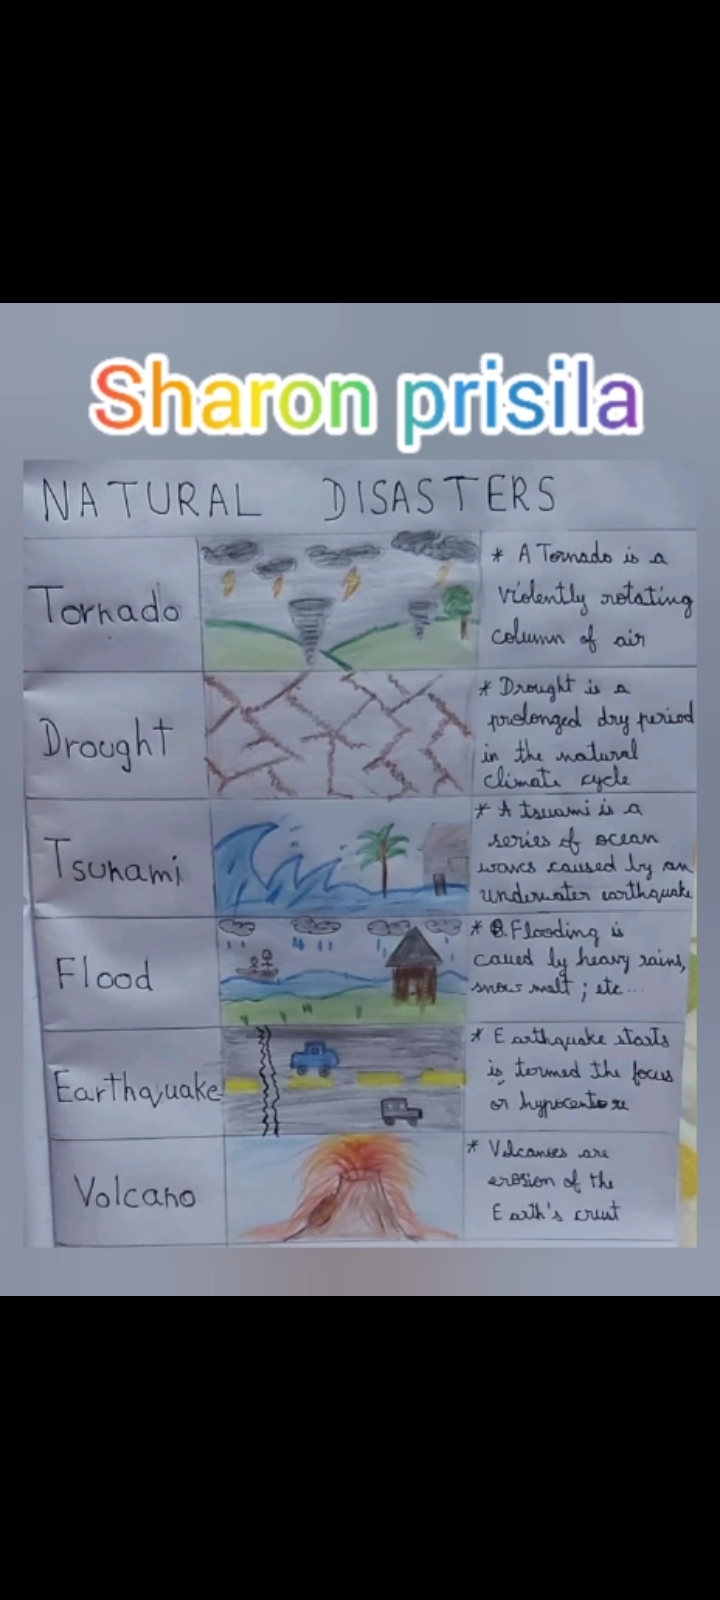 Sharon prisila
NATURAL DISASTERS
Tornado
* A Tornado is a
violently rotating
column of air
Drought
* Drought is a
prolonged dry period
in the natural
climate cycle
Tsunami
* A tsuami is a
series of ocean
waves caused by an
underwater earthquake
Flood
* Flooding is
caued by heavy rains,
snow malt ; etc...
Earthquake
* Earthquake starts
is termed the focus
or hypocentre
Volcano
* Volcanies are
erosion of the
Earth's crust